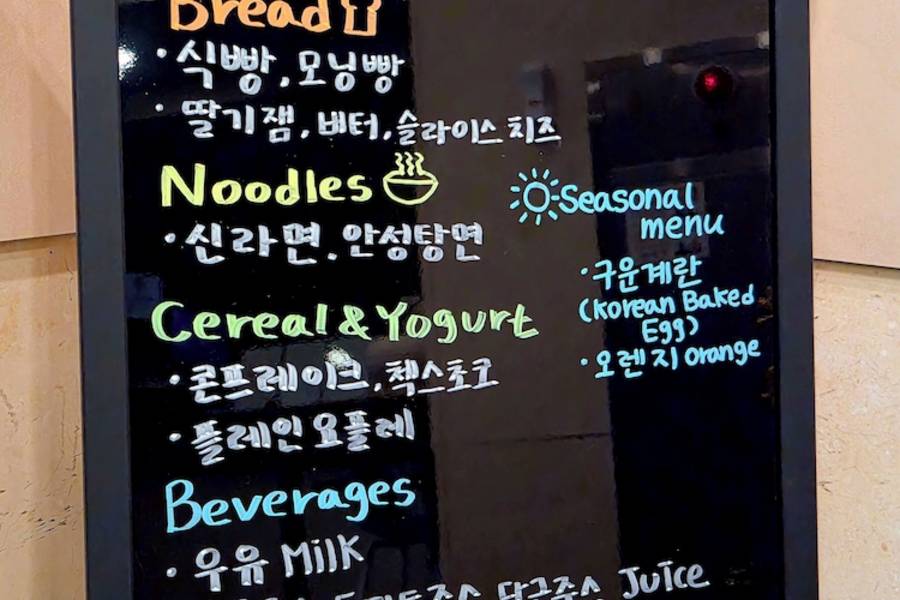 Bread
· 식빵, 모닝빵
· 딸기잼, 버터, 슬라이스 치즈
Noodles
· 신라면, 안성탕면
Cereal & Yogurt
· 콘프레이크, 첵스초코
· 플레인 요플레
Beverages
· 우유 Milk
당근주스 Juice
Seasonal
menu
· 구운계란
(Korean Baked
Egg)
· 오렌지 orange